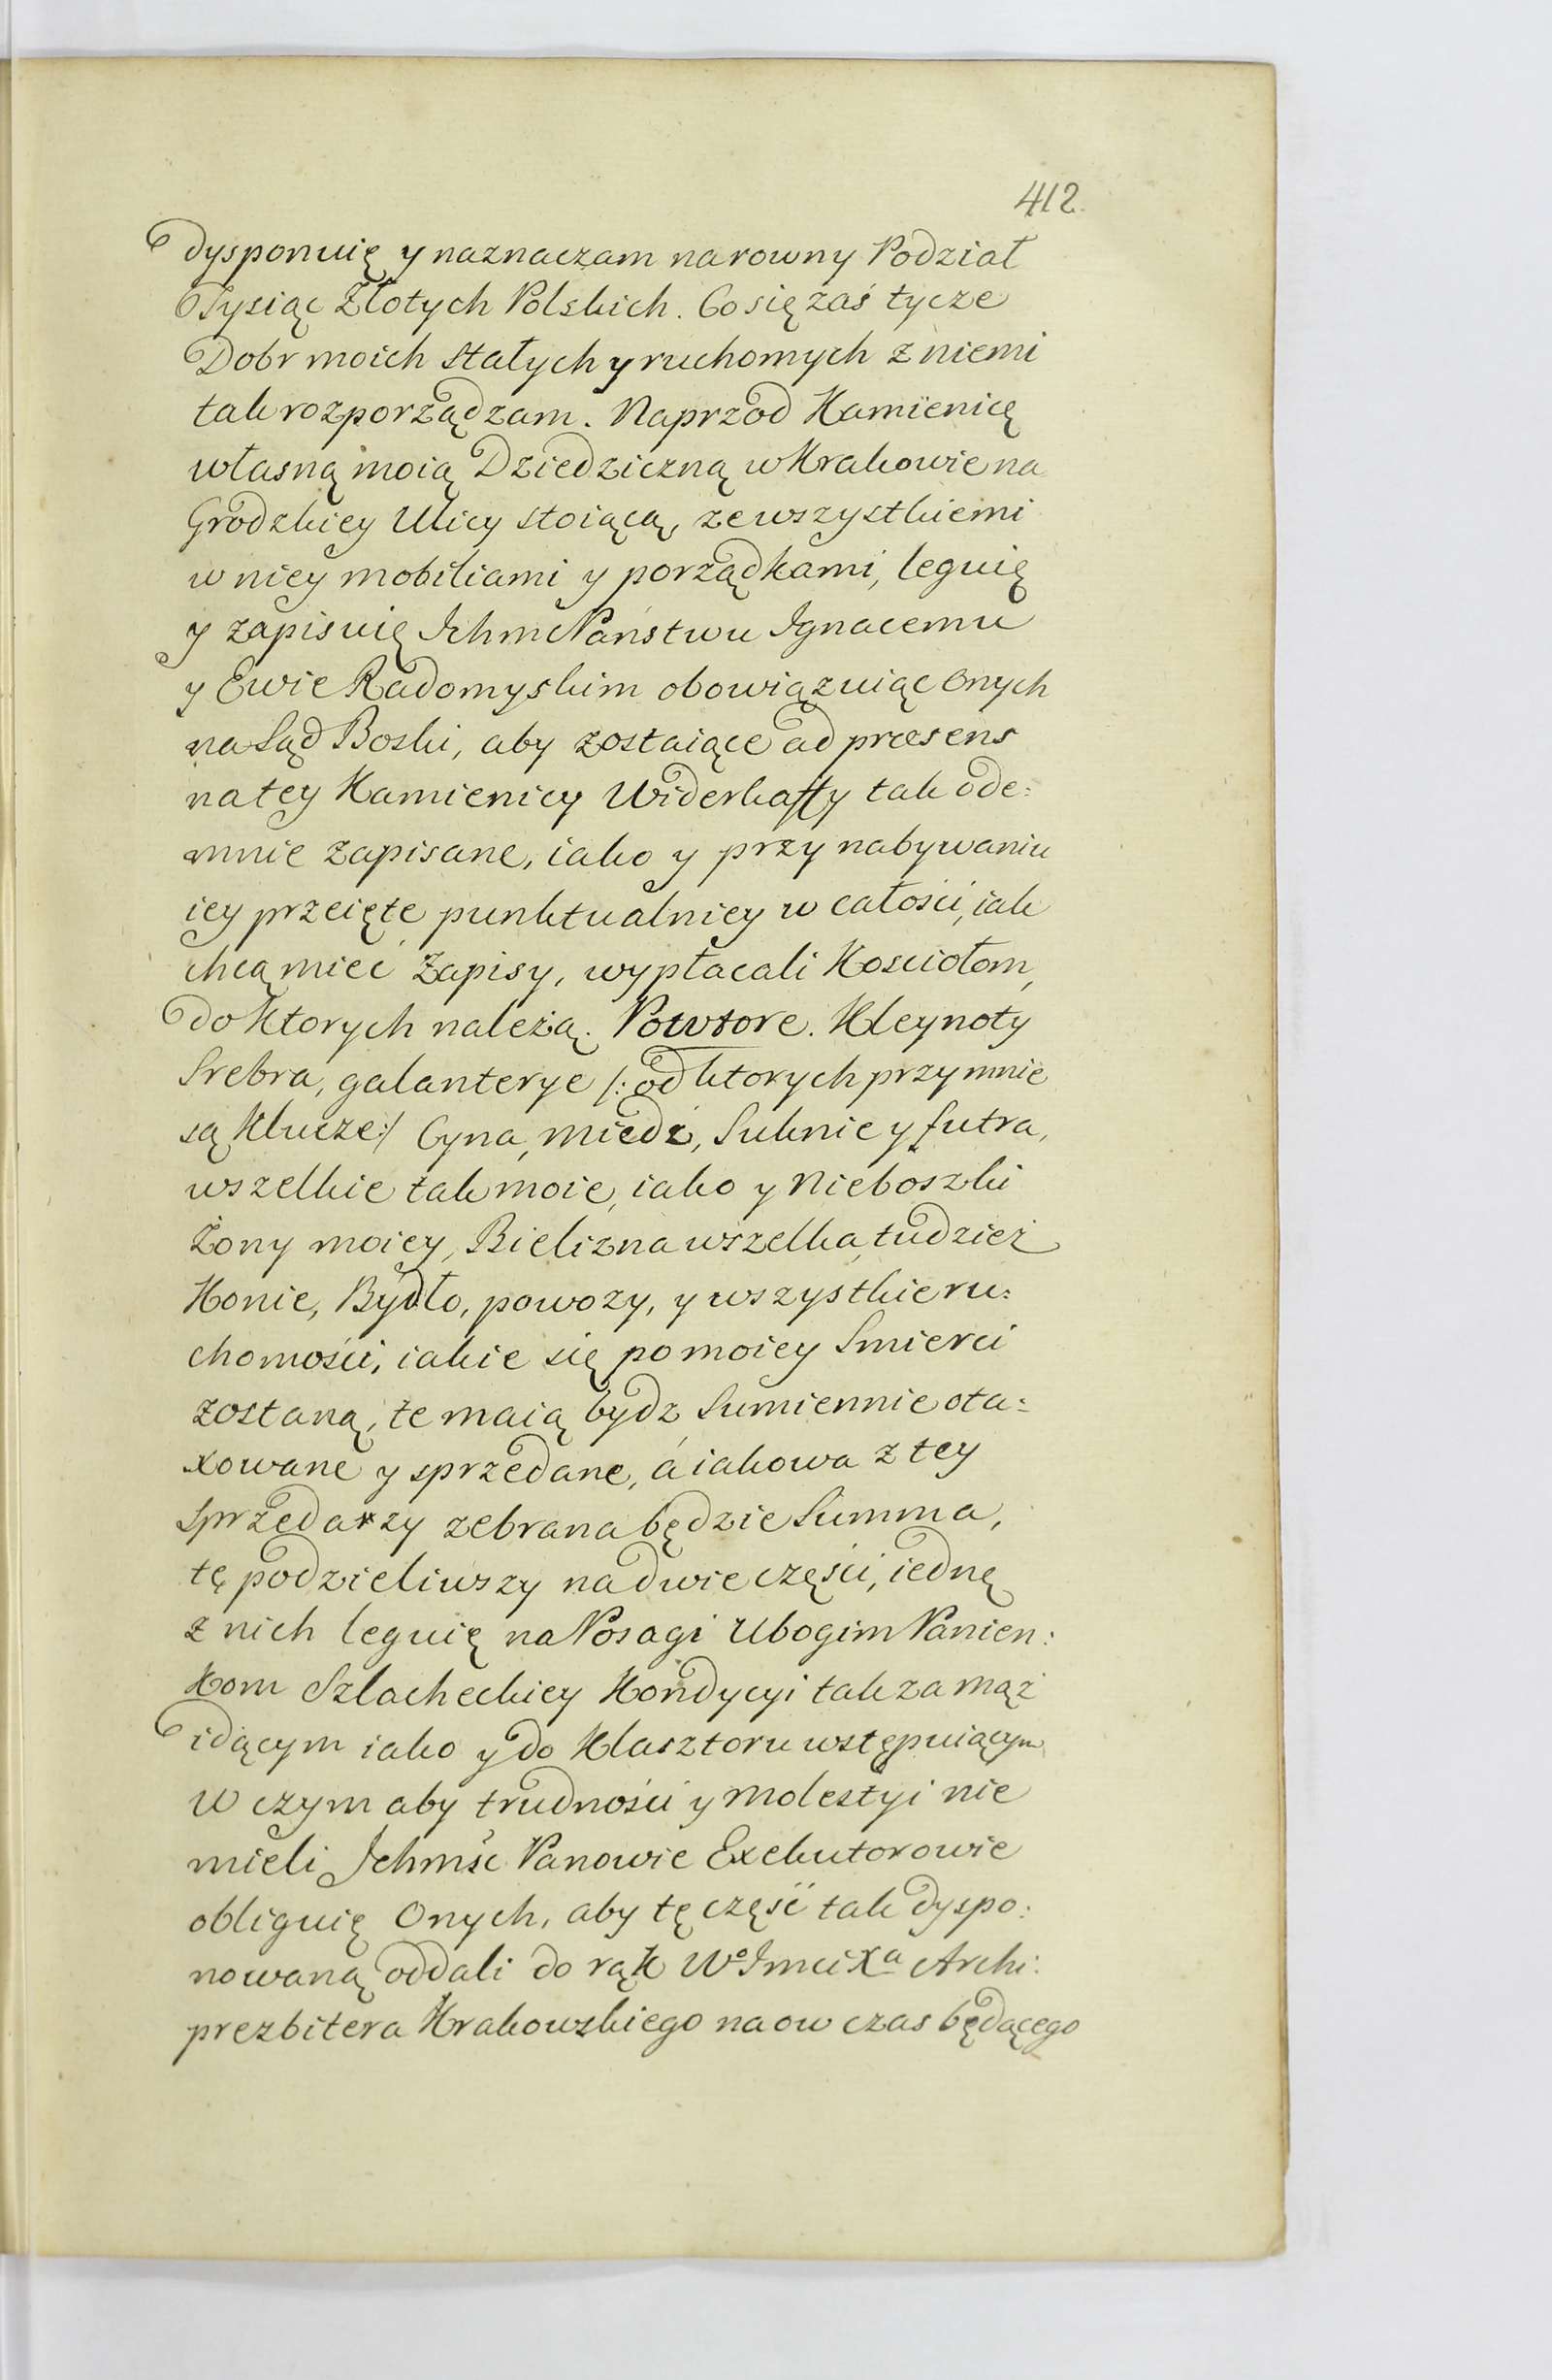 412.
dysponuię y naznaczam na rowny Podział
Tysiąc Złotych Polskich. Co się zaś tycze
Dobr moich stałych y ruchomych z niemi
tak rozporządzam. Naprzod Kamienicę
własną moią Dziedziczną w Krakowie na
Grodzkiey Ulicy stoiącą, ze wszystkiemi
w niey mobiliami y porządkami, leguię
y zapisuię Ichm Państwu Ignacemu
y Ewie Radomyskim obowiązuiąc Onych
na Sąd Boski, aby zostaiące ad præsens
na tey Kamienicy Widerkaffy tak ode=
mnie zapisane, iako y przy nabywaniu
iey przeięte punktualniey w całości, iak
chcą mieć Zapisy, wypłacali Kosciołom,
do Ktorych należą. Powtore. Kleynoty
Srebra, galanterye /: od ktorych przy mnie
są Klucze :/ Cyna, miedź, Suknie y futra,
wszelkie tak moie, iako y Nieboszki
Żony moiey, Bielizna wszelka, tudzież
Konie, Bydło, powozy, y wszystkie ru=
chomości, iakie się po moiey Smierci
zostaną, te maią bydz Sumiennie ota=
xowane y sprzedane, á iakowa z tey
Sprzedarzy zebrana będzie Summa,
tę podzieliwszy na dwie części, iednę
z nich leguię na Posagi Ubogim Panien=
kom Szlacheckiey Kondycyi tak za mąż
idącym iako y do Klasztoru wstępuiącym
W czym aby trudności y molestyi nie
mieli Ichmść Panowie Exekutorowie
obliguię Onych, aby tę część tak dyspo=
nowaną oddali do rąk Wo Imci Xa Archi=
prezbitera Krakowskiego na ow czas będącego